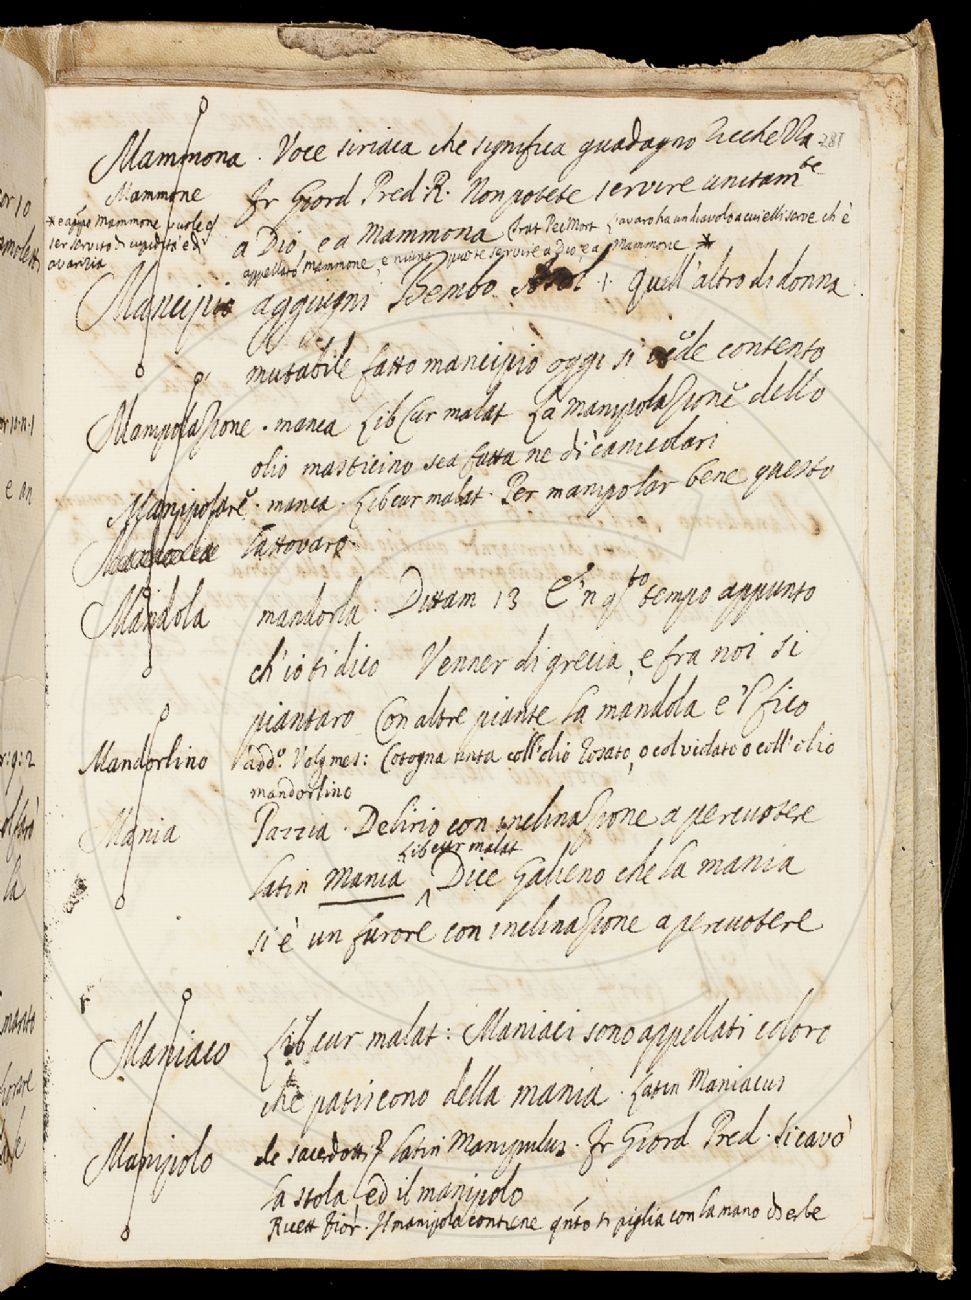 281
Mammona. Voce siriaca che significa guadagno ricchezza
Mammone Fr Giord Pred. R. Non potete servire unitamte
a Dio, e a Mammona Trat Pec Mort Lavaro ha un diavolo a cui elli serve ch'è
appellato Mammone, e niuno puote servire a Dio, e a Mammone *
* e appo Mammone vuole
ser servito di cupidità e d
avarizia
Mancipio aggiugni Bembo Asol 1. quell'altro di donna
mutabile fatto mancipio oggi si vede contento
Manipolazione. manca Lib Cur malat La manipolazione dello
olio masticino sea fatta ne dì canicolari
Manipolare. manca. Lib cur malat. Per manipolar bene questo
lattovaro.
Mandola mandorla: Dittam 13 E'n qto tempo appunto
ch'io ti dico Venner di grecia, e fra noi si
piantaro Con altre piante la mandola e'l fico
Mandorlino add. Volg mes: Cotogna unta coll'olio rosato, o col violato o coll'olio
mandorlino
Mania Pazzia. Delirio con inclinazione a percuotere
Lib cur malat
latin Mania Dice Galieno che la mania
si è un furore con inclinazione a percuotere
Maniaco Lib cur malat: Maniaci sono appellati coloro
che patiscono della mania. Latin Maniacus
Manipolo de sacerdoti latin Manipulus. Fr Giord Pred. Si cavò
la stola, ed il manipolo
Ricett Fior. Il manipolo contiene qnto si piglia con la mano d'erbe